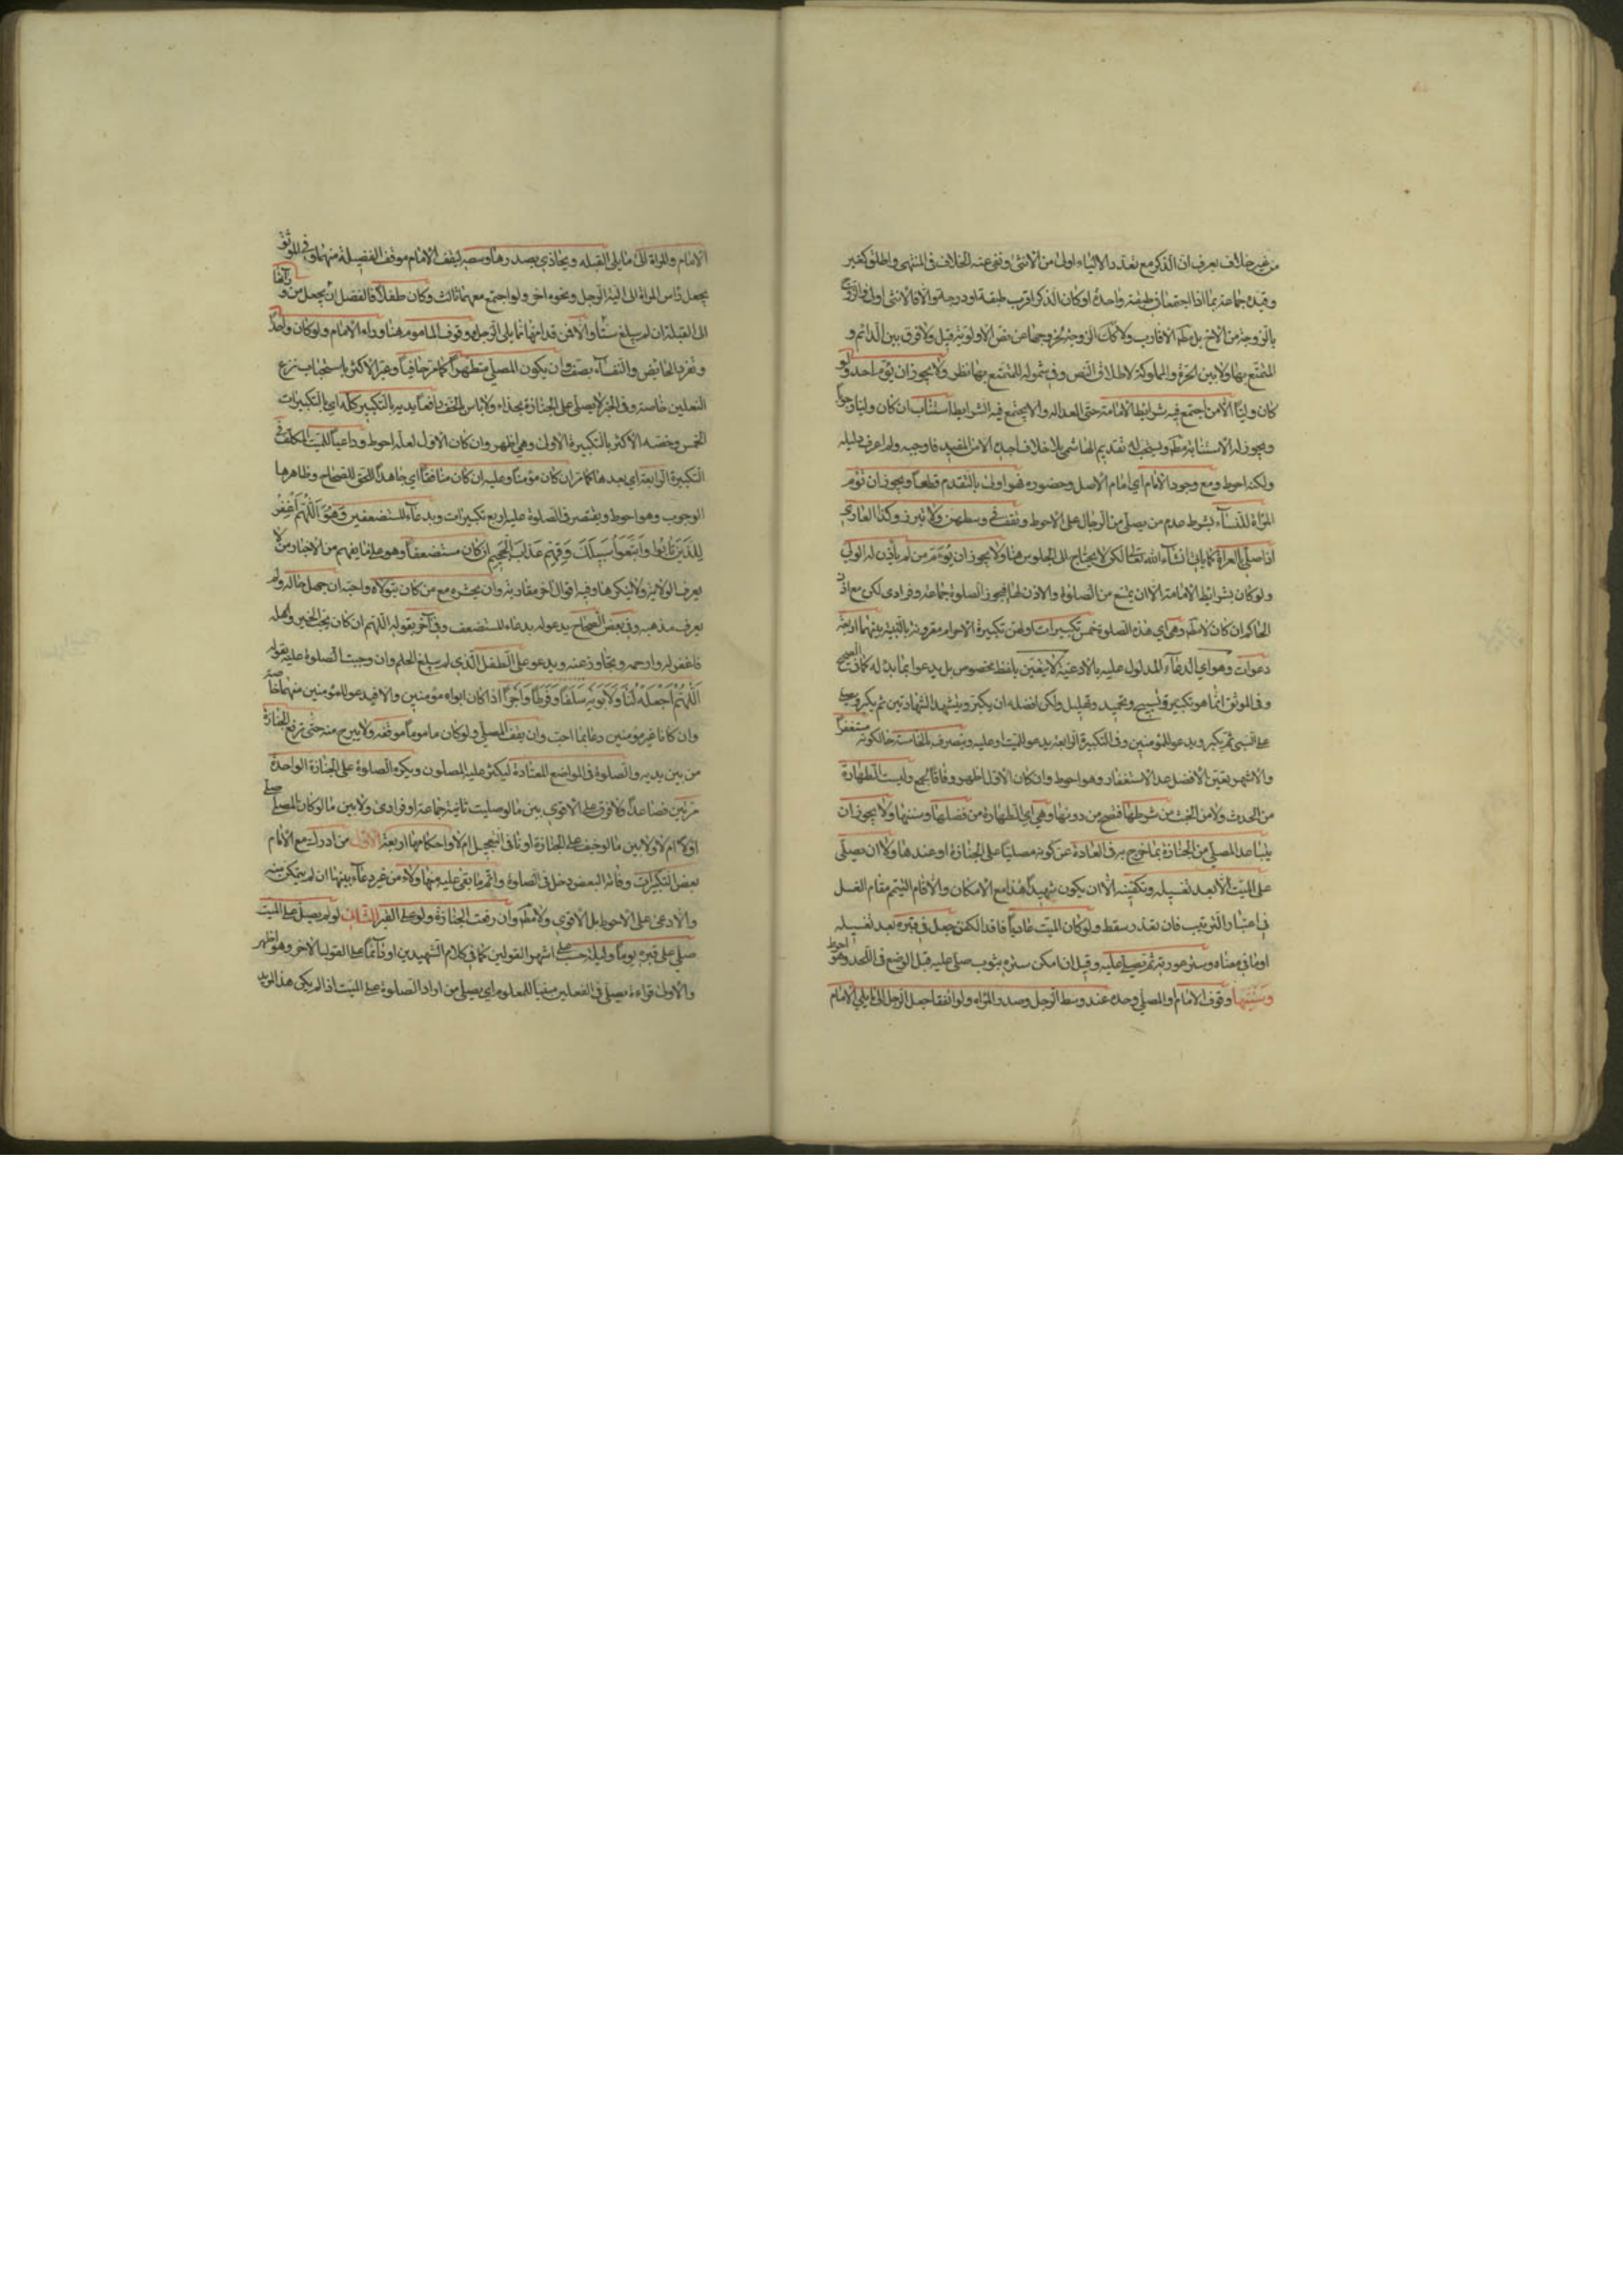 من غير خلاف يعرف ان الذكر مع تعدد الاولياء اولى من الانثى ونفى عنه الخلاف في المنتهى واطلق كغير
وقيده جماعة بما اذا اجتمعا في طبقة واحدة او كان الذكر اقرب طبقة او درجة والا فالانثى اولى والزوج اولى
بالزوجة من الاخ بل مط الاقارب ولا كك الزوجة لخروجها عن نص الاولوية قيل ولا فرق بين الدائم و
المتمتع بها ولا بين الحرة والمملوكة لاطلاق النص وفي شموله للمتمتع بها نظر ولا يجوز ان يؤم احد ولو
كان وليا الا من اجتمع فيه شرايط الامامة حتى العدالة والا يجتمع فيه الشرايط استناب ان كان وليا وجوبا
ويجوز له الاستنابة مط ويستحب له تقديم الهاشمي بلا خلاف اجده الا من المفيد فاوجبه ولم اعرف دليله
ولكنه احوط ومع وجود الامام اي امام الاصل وحضوره فهو اولى بالتقدم قطعا ويجوز ان تؤم
المراة للنساء بشرط عدم من يصلي من الرجال على الاحوط وتقف في وسطهن ولا تبرز وكذا العاري
اذا صلى بالعراة كما ياتي انشاء الله تعالى لكن لا يحتاج الى الجلوس هنا ولا يجوز ان يؤم من لم ياذن له الولي
ولو كان بشرايط الامامة الا ان يمتنع من الصلوة والاذن لها فيجوز الصلوة جماعة وفرادى لكن مع اذن
الحاكم ان كان والا مط وهي اي هذه الصلوة خمس تكبيرات اولهن تكبيرة الاحرام مقرونة بالنية بينهما اربعة
دعوات وهو اي الدعاء المدلول عليه بالادعية لا يتعين بلفظ مخصوص بل يدعو بما بدا له كما في الصحيح
وفي الموثق انما هو تكبير وتسبيح وتحميد وتهليل ولكن افضله ان يكبر ويتشهد الشهادتين ثم يكبر ويصلي
على النبي ثم يكبر ويدعو للمؤمنين وفي التكبيرة الرابعة يدعو للميت او عليه وينصرف بالخامسة حالكونه مستغفرا
والاشهر تعين الافضل عدا الاستغفار وهو احوط وان كان الاول اظهر وفاقا لجمع وليست الطهارة
من الحدث ولا من الخبث من شرطها فتصح من دونها وهي اي الطهارة من فضلها وسننها ولا يجوز ان
يتباعد المصلي من الجنازة بما خرج به في العادة عن كونه مصليا على الجنازة او عندها ولا ان يصلي
على الميت الا بعد تغسيله وتكفينه الا ان يكون شهيدا هذا مع الامكان والا قام التيمم مقام الغسل
في اعتبار الترتيب فان تعذر سقط ولو كان الميت عاريا فاقد الكفن جعل في قبره بعد تغسيله
او ما في معناه وستر عورته ثم يصلى عليه وقيل ان امكن ستره بثوب صلى عليه قبل الوضع في اللحد وهو احوط
وسننها وقوف الامام او المصلي وحده عند وسط الرجل وصدر المراة ولو اتفقا جعل الرجل الى ما يلي الامام
الامام والمراة الى ما يلي القبله ويحاذي بصدرها وسطه ليقف الامام موقف الفضيلة منهما وفي الموثق
يجعل راس المراة الى الية الرجل ونحوه اخر ولو اجتمع معهما ثالث وكان طفلا فالفضل ان يجعل من ورائها
الى القبلة ان لم يبلغ ستا والا فمن قدامها مما يلي الرجل ووقوف الماموم هنا وراء الامام ولو كان واحدا
وتفرد الحائض والنفساء بصف وان يكون المصلي متطهرا كما مر حافيا وعبر الاكثر باستحباب نزع
النعلين خاصة وفي الخبر لا يصلى على الجنازة بحذاء ولا باس بالخف رافعا يديه بالتكبير كله اي بالتكبيرات
الخمس وخصه الاكثر بالتكبيرة الاولى وهي اظهر وان كان الاول لعله احوط وداعيا للميت المكلف في
التكبيرة الرابعة اي بعدها كما مر ان كان مؤمنا وعليه ان كان منافقا اي جاهدا للحق للصحاح وظاهرها
الوجوب وهو احوط ويقتصر في الصلوة عليه اربع تكبيرات وبدعاء المستضعفين وهو اللهم اغفر
للذين تابوا واتبعوا سبيلك وقهم عذاب الجحيم ان كان مستضعفا وهو على ما يفهم من الاخبار من لا
يعرف الولاية ولا ينكرها وفيه اقوال اخر مقاربة وان يحشره مع من كان يتولاه واحبه ان جهل حاله ولم
يعرف مذهبه وفي بعض الصحاح يدعو له بدعاء المستضعف وفي آخر يقول اللهم ان كان يحب الخير واهله
فاغفر له وارحمه وتجاوز عنه ويدعو على الطفل الذي لم يبلغ الحلم وان وجبت الصلوة عليه بقوله
اللهم اجعله لنا ولابويه سلفا وفرطا واجرا اذا كان ابواه مؤمنين والا فيدعو للمؤمنين منهما خاصة
وان كانا غير مؤمنين دعا بما احب وان يقف المصلي ولو كان ماموما موقفه ولا يبرح منه حتى ترفع الجنازة
من بين يديه والصلوة في المواضع المعتادة ليكثر عليه المصلون ويكره الصلوة على الجنازة الواحدة
مرتين فصاعدا ولا فرق على الاقوى بين ما لو صليت ثانية جماعة او فرادى ولا بين ما لو كان المصلي صلى
اولا ام لا ولا بين ما لو خيف على الجنازة او نافى التعجيل ام لا واحكامها اربعة الاول من ادرك مع الامام
بعض التكبيرات وفاته البعض دخل في الصلوة واتم ما بقي عليه منها ولاء من غير دعاء بينها ان لم يتمكن منه
والا دعى على الاحوط بل الاقوى ولا مط وان رفعت الجنازة ولو على القبر الثاني لو لم يصل على الميت
صلي على قبره يوما وليلة حسب على اشهر القولين كما في كلام الشهيدين او دائما على القول الاخر وهو اظهر
والاولى قراءة يصلي في الفعلين مبنيا للمعلوم اي يصلي من اراد الصلوة على الميت اذا لم يكن هذا المريد